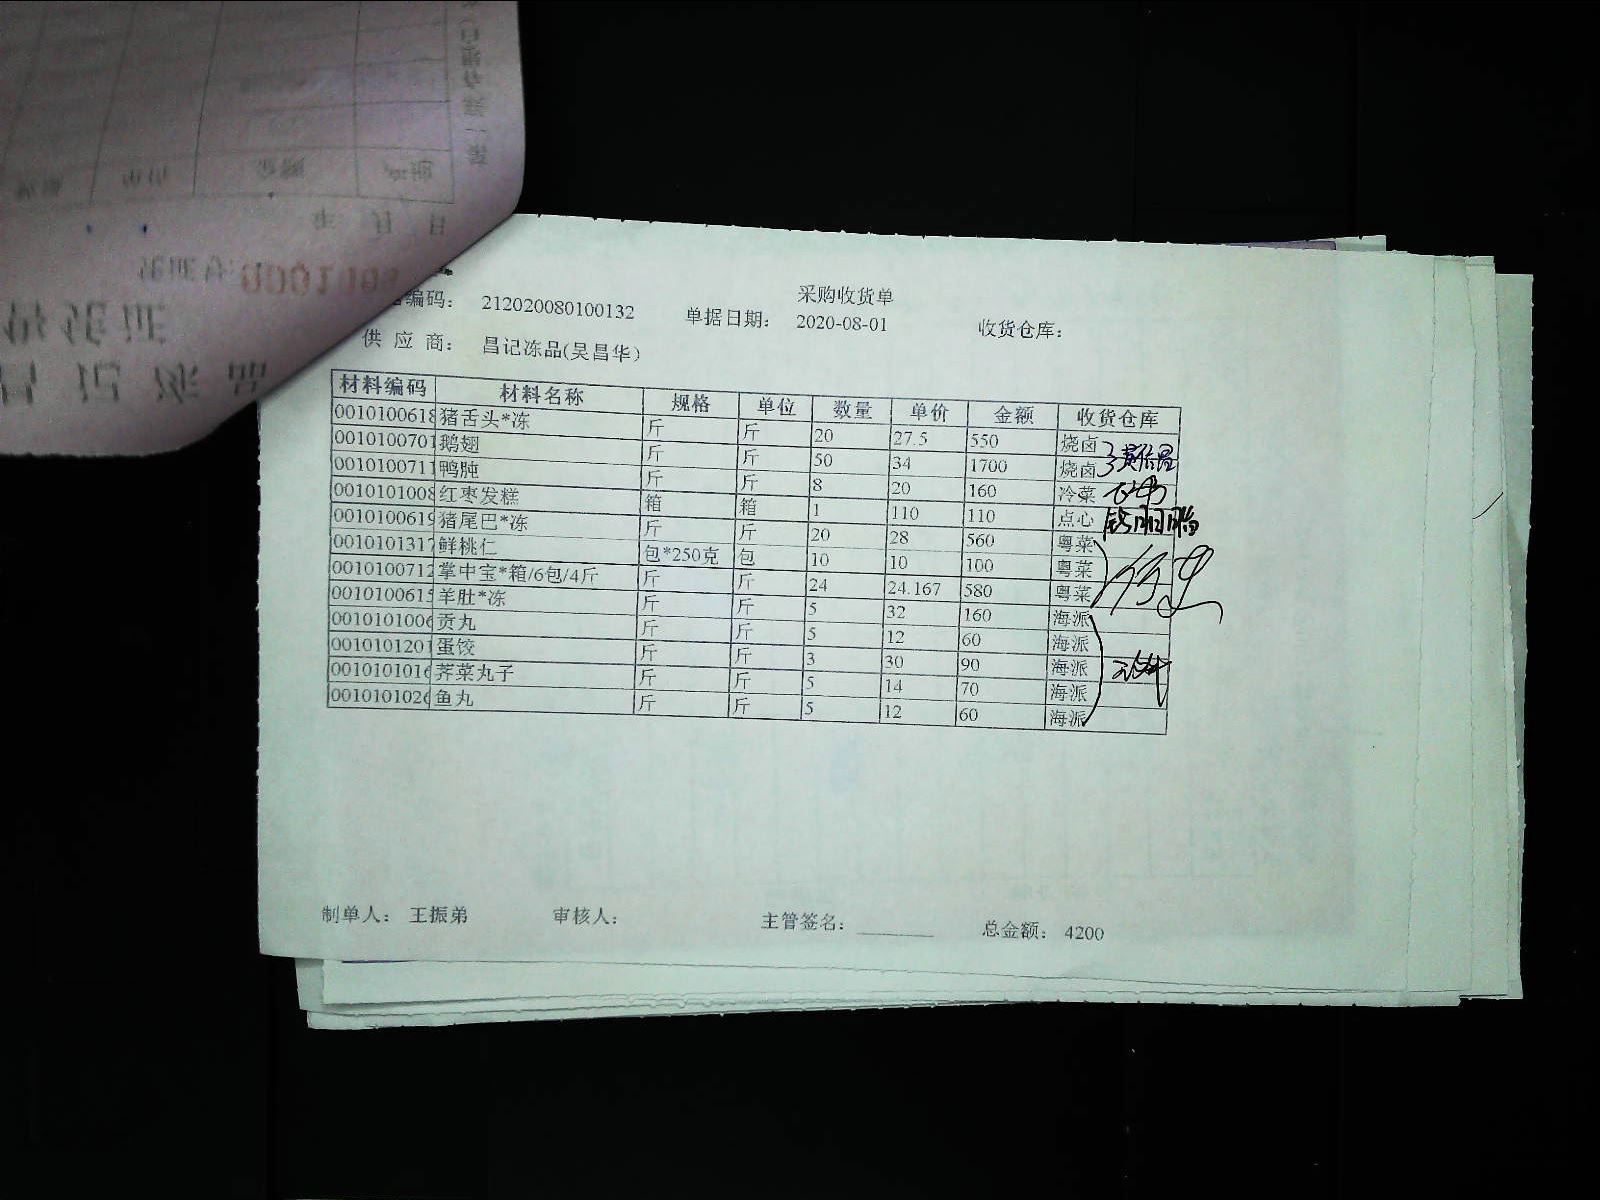 采购收货单
编码： 212020080100132 单据日期： 2020-08-01 收货仓库：
供 应 商： 昌记冻品(吴昌华)
材料编码 材料名称 规格 单位 数量 单价 金额 收货仓库
0010100618 猪舌头*冻 斤 斤 20 27.5 550 烧卤
0010100701 鹅翅 斤 斤 50 34 1700 烧卤
0010100711 鸭肫 斤 斤 8 20 160 冷菜
0010101008 红枣发糕 箱 箱 1 110 110 点心
0010100619 猪尾巴*冻 斤 斤 20 28 560 粤菜
0010101317 鲜桃仁 包*250克 包 10 10 100 粤菜
0010100712 掌中宝*箱/6包/4斤 斤 斤 24 24.167 580 粤菜
0010100615 羊肚*冻 斤 斤 5 32 160 海派
0010101006 贡丸 斤 斤 5 12 60 海派
0010101201 蛋饺 斤 斤 3 30 90 海派
0010101016 荠菜丸子 斤 斤 5 14 70 海派
0010101026 鱼丸 斤 斤 5 12 60 海派
制单人： 王振弟 审核人： 主管签名： 总金额： 4200